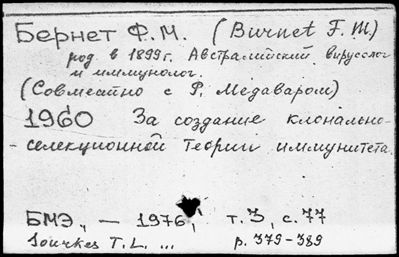 Бернет Ф.М. (Burnet F.M)
род. в 1899г. Австралийский вирусолог
и иммунолог.
(Совместно с Р. Медаваром)
1960 За создание клонально-
-селекционной теории иммунитета
БМЭ, – 1976, т.3, с.77
Sourkes T.L. ... p. 379-389